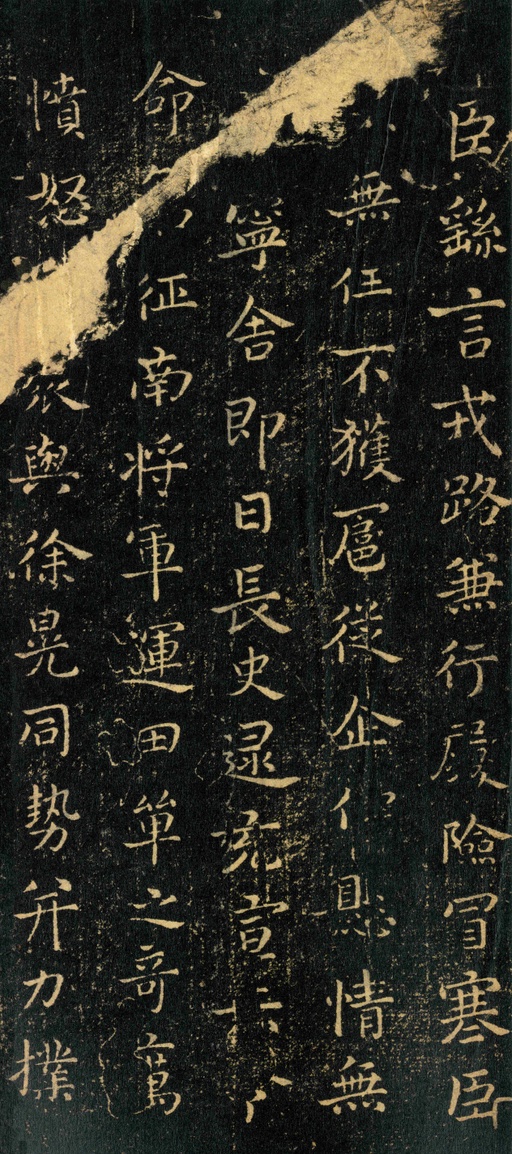 臣繇言戎路兼行履險冒寒臣
無任不獲扈從企佇懸情無
寧舍即日長史逯充宣示
命征南将軍運田單之奇厲
憤怒與徐晃同勢并力撲